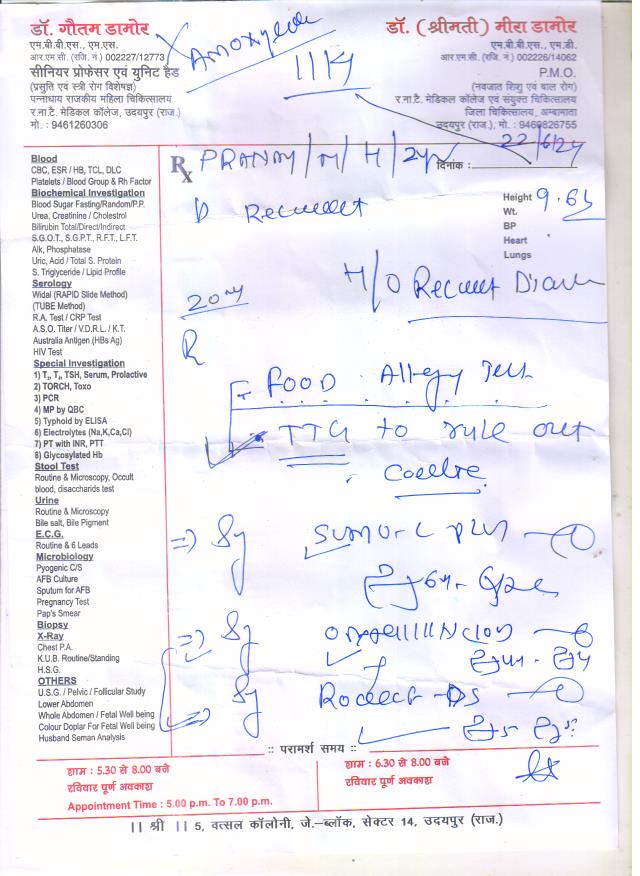 डॉ. गौतम डामोर
एम.बी.बी.एस., एम.एस.
आर.एम सी. (रजि. नं.) 002227/12773
सीनियर प्रोफेसर एवं युनिट हैड
(प्रसुति एवं स्त्री रोग विशेषज्ञ)
पन्नाधाय राजकीय महिला चिकित्सालय
र.ना.टै. मेडिकल कॉलेज, उदयपुर (राज.)
मो. : 9461260306
11 Kg
डॉ. (श्रीमती) मीरा डामोर
एम.बी.बी.एस., एम.डी.
आर.एम.सी. (रजि. नं.) 002226/14062
P.M.O.
(नवजात शिशु एवं बाल रोग)
र.ना.टै. मेडिकल कॉलेज एवं संयुक्त चिकित्सालय
जिला चिकित्सालय, अम्बामाता
उदयपुर (राज.), मो.: 9460826755
Rx PRANAY / M / H / 2yr दिनांक : 22/6/24
Blood
CBC, ESR / HB, TCL, DLC
Platelets / Blood Group & Rh Factor
Biochemical Investigation
Blood Sugar Fasting/Random/P.P.
Urea, Creatinine / Cholestrol
Bilirubin Total/Direct/Indirect
S.G.O.T., S.G.P.T., R.F.T., L.F.T.
Alk, Phosphatase
Uric, Acid / Total S. Protein
S. Triglyceride / Lipid Profile
Serology
Widal (RAPID Slide Method)
(TUBE Method)
R.A. Test / CRP Test
A.S.O. Titer / V.D.R.L. / K.T.
Australia Antigen (HBs Ag)
HIV Test
Special Investigation
1) T₃, T₄, TSH, Serum, Prolactive
2) TORCH, Toxo
3) PCR
4) MP by QBC
5) Typhoid by ELISA
6) Electrolytes (Na,K,Ca,Cl)
7) PT with INR, PTT
8) Glycosylated Hb
Stool Test
Routine & Microscopy, Occult
blood, disaccharids test
Urine
Routine & Microscopy
Bile salt, Bile Pigment
E.C.G.
Routine & 6 Leads
Microbiology
Pyogenic C/S
AFB Culture
Sputum for AFB
Pregnancy Test
Pap's Smear
Biopsy
X-Ray
Chest P.A.
K.U.B. Routine/Standing
H.S.G.
OTHERS
U.S.G. / Pelvic / Follicular Study
Lower Abdomen
Whole Abdomen / Fetal Well being
Colour Doplar For Fetal Well being
Husband Seman Analysis
Height
Wt.
BP
Heart
Lungs
H/O Recurrent
FOOD Allergy Test
TTG to rule out
Sy
Sy
Sy
:: परामर्श समय ::
शाम : 5.30 से 8.00 बजे
रविवार पूर्ण अवकाश
Appointment Time : 5.00 p.m. To 7.00 p.m.
शाम : 6.30 से 8.00 बजे
रविवार पूर्ण अवकाश
|| श्री || 5, वत्सल कॉलोनी, जे.–ब्लॉक, सेक्टर 14, उदयपुर (राज.)